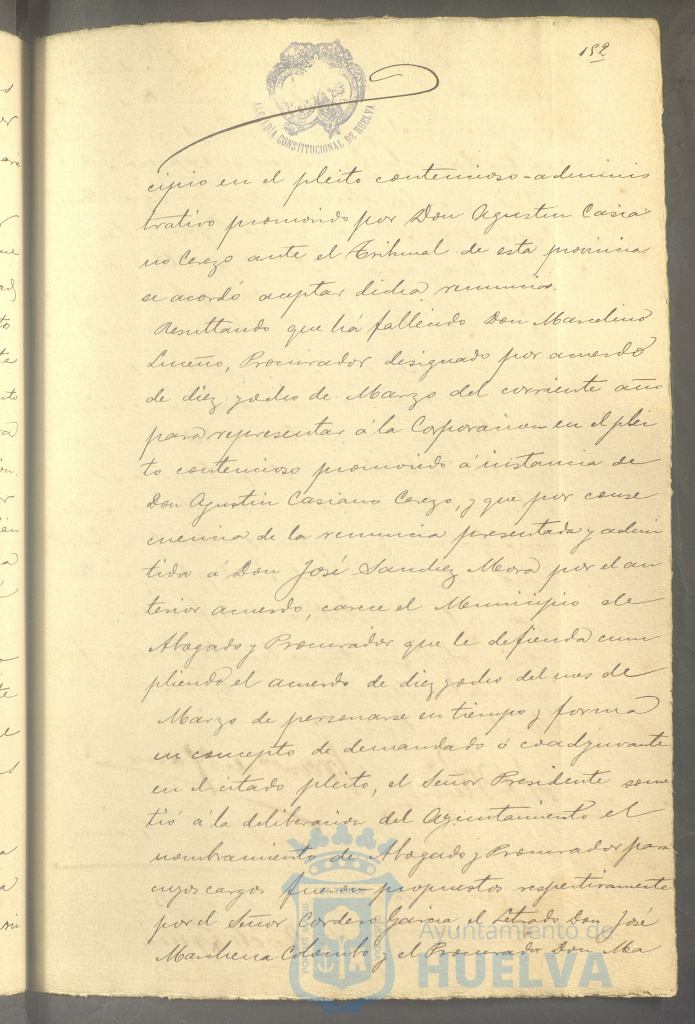 152
ALCALDIA CONSTITUCIONAL DE HUELVA
cipio en el pleito contencioso-adminis
trativo promovido por Don Agustin Casia
no Cerezo ante el Tribunal de esta provincia
se acordó aceptar dicha renuncia.
Resultando que ha fallecido Don Marcelino
Luceño, Procurador designado por acuerdo
de diez y ocho de Marzo del corriente año
para representar á la Corporacion en el plei
to contencioso promovido á instancia de
Don Agustin Casiano Cerezo, y que por conse
cuencia de la renuncia presentada y admi
tida á Don José Sanchez Mora por el an
terior acuerdo, carece el Municipio de
Abogado y Procurador que le defienda cum
pliendo el acuerdo de diez y ocho del mes de
Marzo de personarse en tiempo y forma
en concepto de demandado ó coadyuvante
en el citado pleito, el Señor Presidente some
tió á la deliberacion del Ayuntamiento el
nombramiento de Abogado y Procurador para
cuyos cargos fueron propuestos respectivamente
por el Señor Cordero Garcia el Letrado Don José
Marchena Colombo y el Procurador Don Ma
Ayuntamiento de
HUELVA